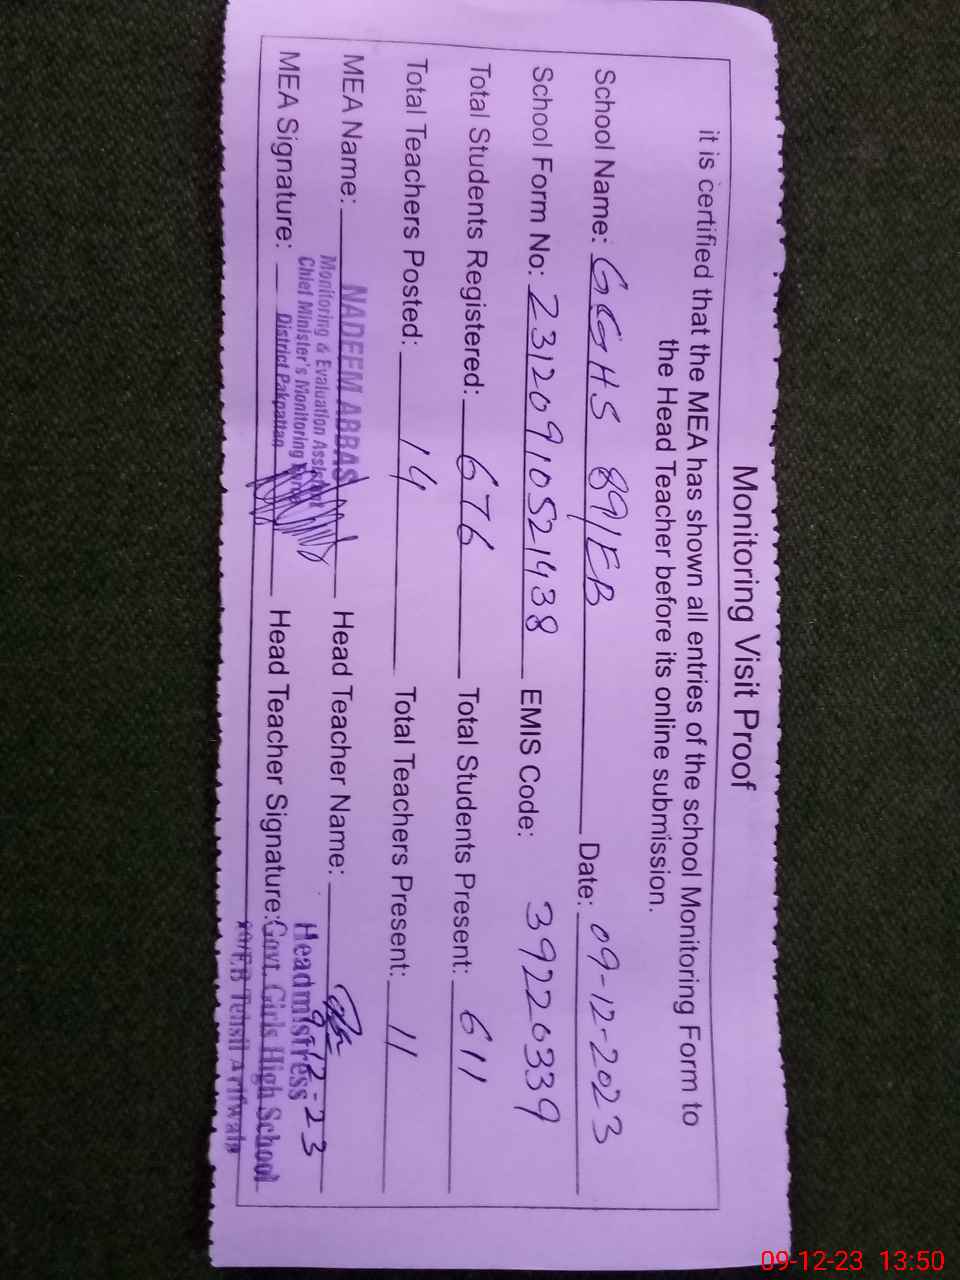 Monitoring Visit Proof
it is certified that the MEA has shown all entries of the school Monitoring Form to
the Head Teacher before its online submission.
School Name: GGHS 89/EB Date: 09-12-2023
School Form No: 23120910521438 EMIS Code: 39220339
Total Students Registered: 676 Total Students Present: 611
Total Teachers Posted: 14 Total Teachers Present: 11
MEA Name: NADEEM ABBAS Head Teacher Name:
Monitoring & Evaluation Assistant
Chief Minister's Monitoring Force
District Pakpattan
MEA Signature: Head Teacher Signature:
9-12-23
Headmistress
Govt. Girls High School
89/EB Tehsil Arifwala
09-12-23 13:50